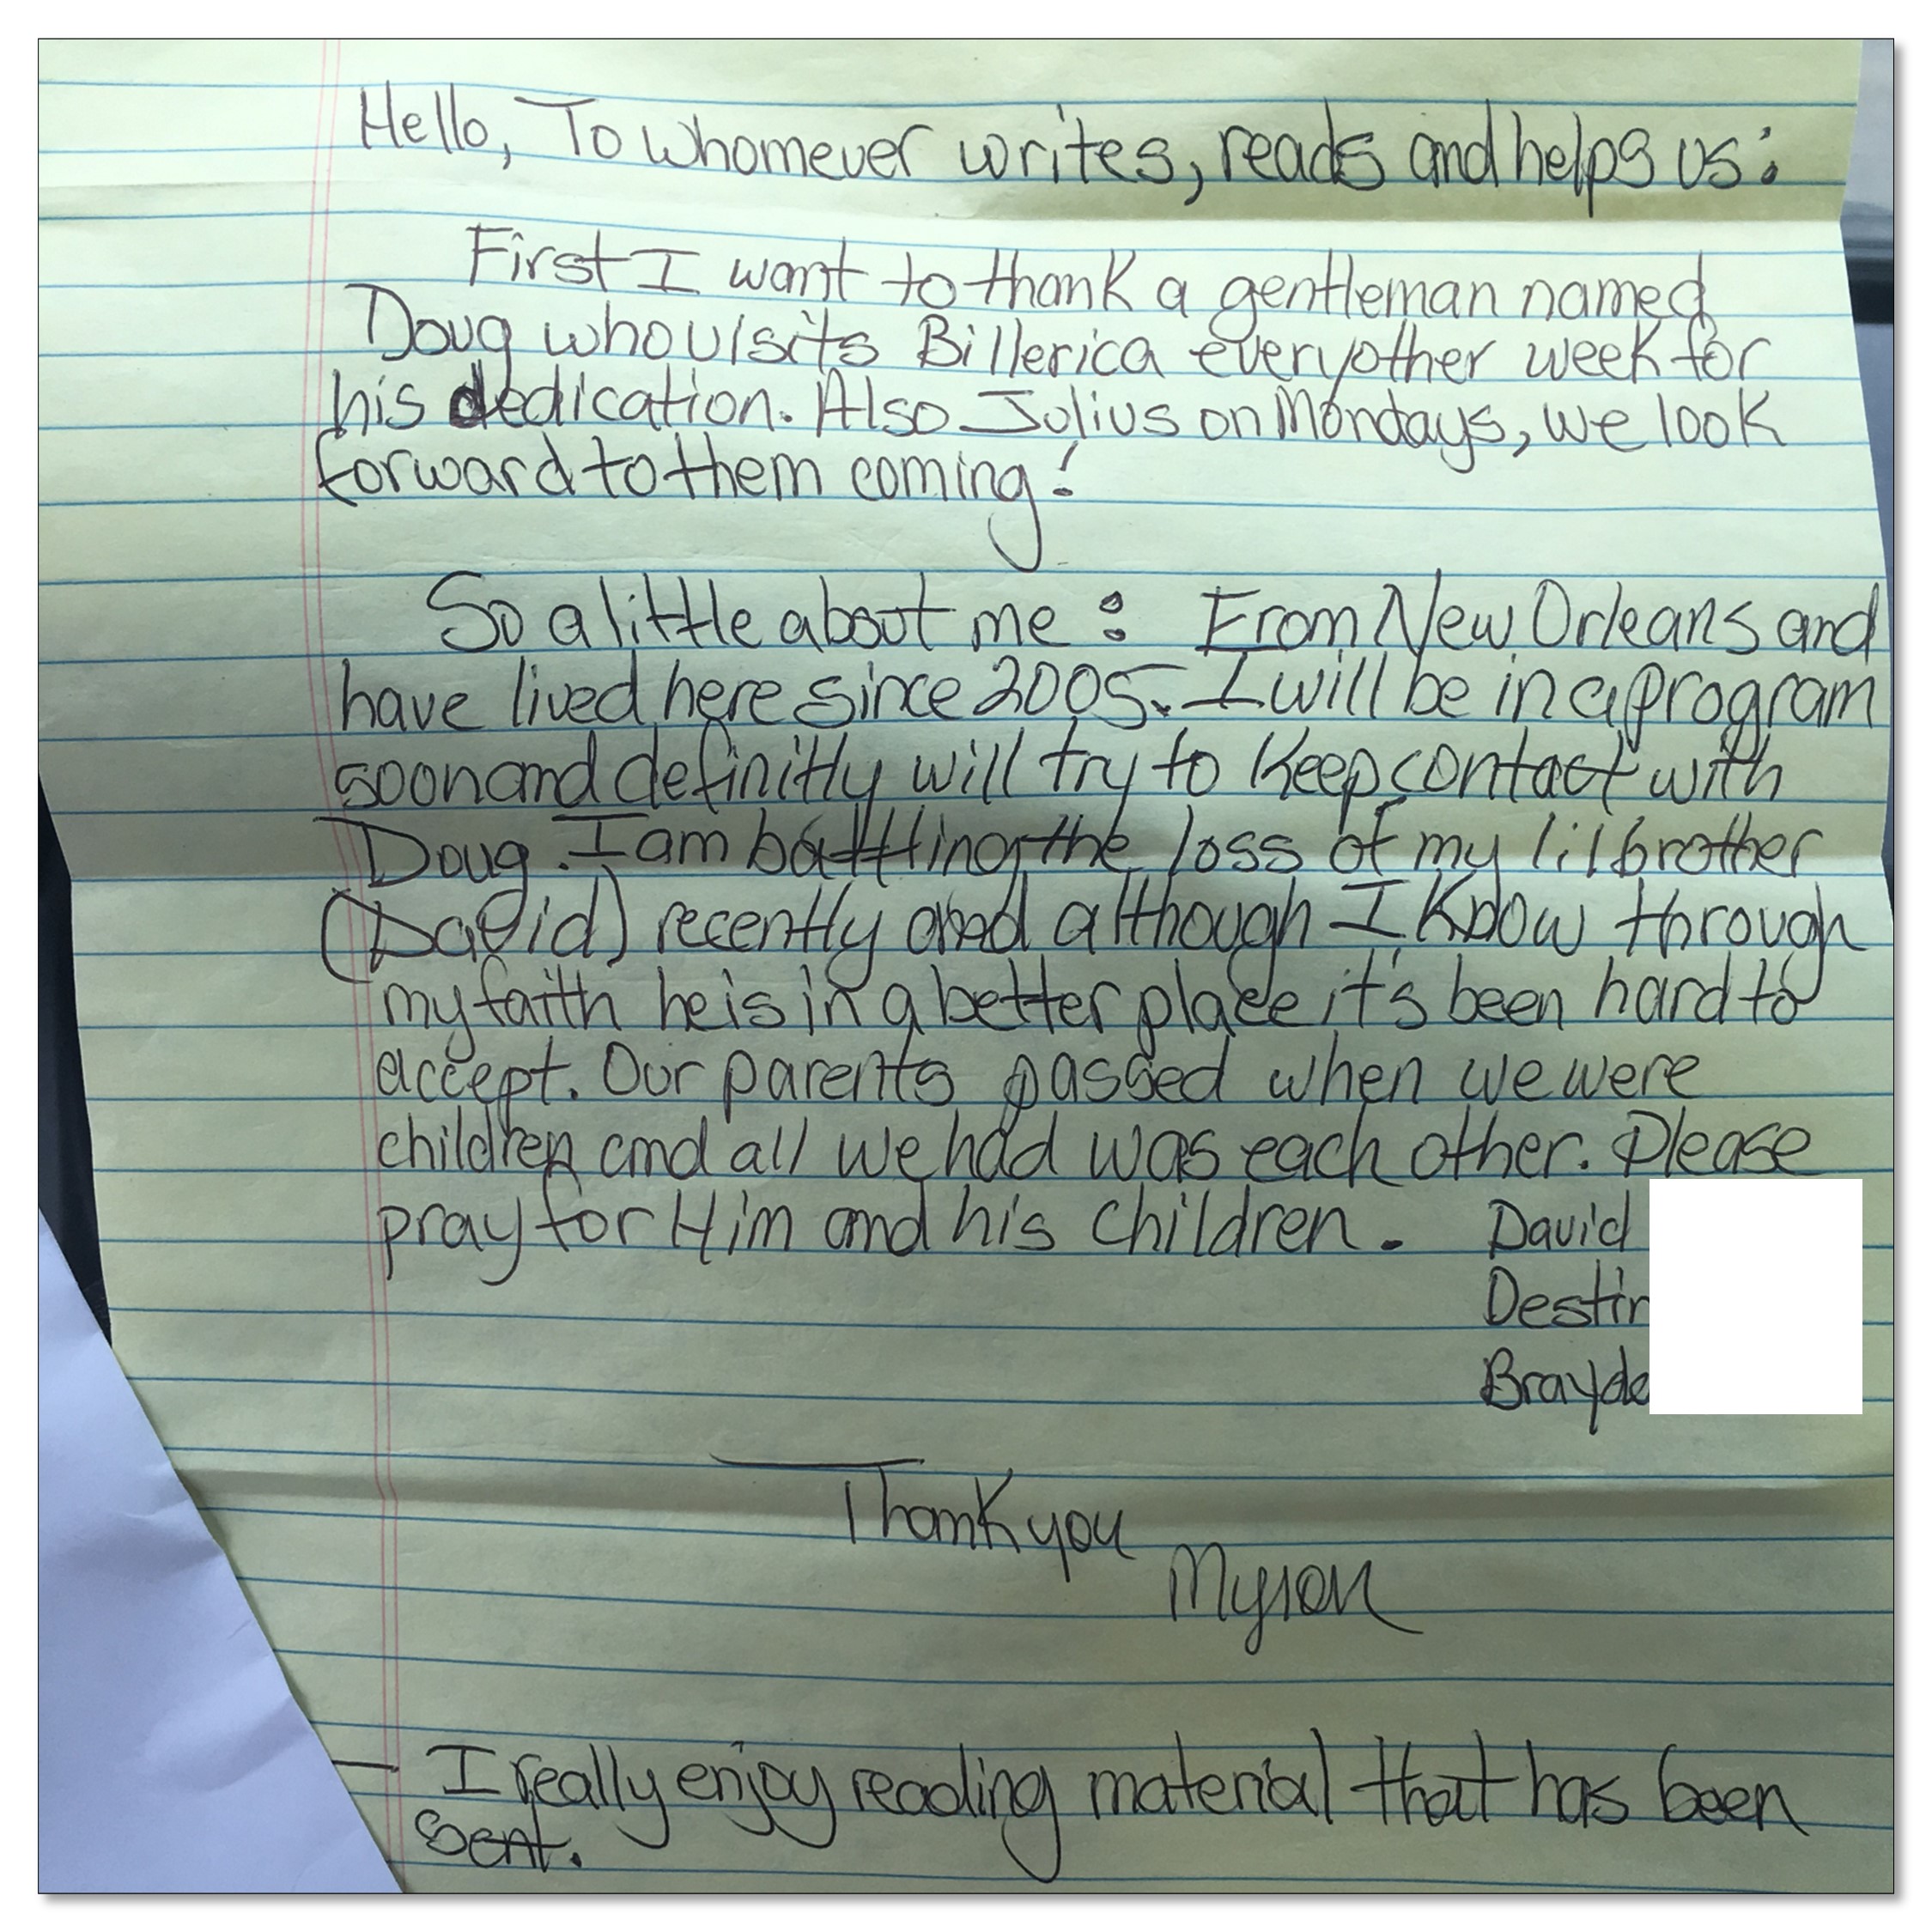 Hello, To whomever writes, reads and helps us:
First I want to thank a gentleman named
Doug who visits Billerica every other week for
his dedication. Also Julius on Mondays, we look
forward to them coming!
So a little about me: From New Orleans and
have lived here since 2005. I will be in a program
soon and definitly will try to keep contact with
Doug. I am battling the loss of my lil brother
(David) recently and although I know through
my faith he is in a better place it's been hard to
accept. Our parents passed when we were
children and all we had was each other. Please
pray for Him and his children. David
Destin
Brayde
Thank you
Myron
- I really enjoy reading material that has been
sent.